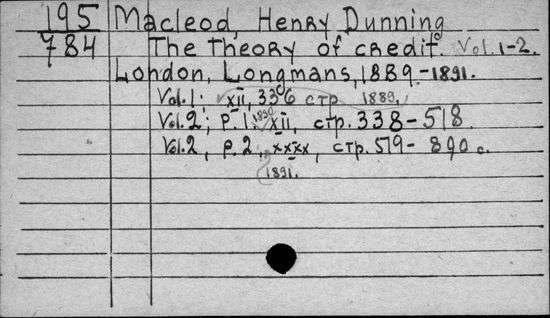 195 Macleod, Henry Dunning
784 The Theory of credit. Vol. 1-2.
London, Longmans, 1889.-1891.
Vol. 1; XII, 336 стр 1889,
Vol. 2; P. 1. 1890 XII, стр. 338-518
Vol. 2, P. 2. xxxx, стр. 519-890 с.
1891.